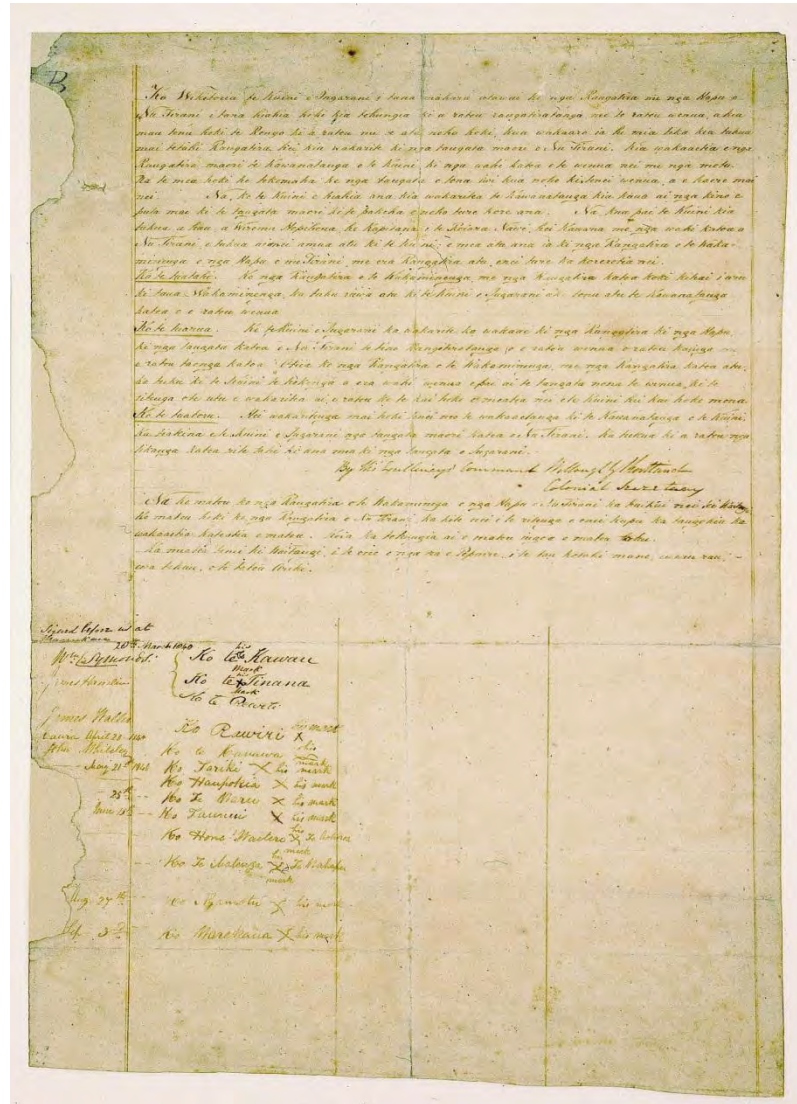 Ko Wikitoria te Kuini o Ingarani i tana mahara atawai ki nga Rangatira me nga Hapu o
Nu Tirani i tana hiahia hoki kia tohungia ki a ratou rangatiratanga me to ratou wenua, a kia
mau tonu hoki te Rongo ki a ratou me te ata noho hoki, kua wakaaro ia he mea tika kia tukua
mai tetahi Rangatira hei kai wakarite ki nga tangata maori o Nu Tirani. Kia wakaaetia e nga
Rangatira maori te Kawanatanga o te Kuini ki nga wahi katoa o te wenua nei me nga motu.
Na te mea hoki he tokomaha ke nga tangata o tona iwi kua noho ki tenei wenua, a e haere mai
nei. Na, ko te Kuini e hiahia ana kia wakaritea te Kawanatanga kia kaua ai nga kino e
puta mai ki te tangata maori ki te pakeha e noho ture kore ana. Na kua pai te Kuini kia
tukua a hau, a Wiremu Hopihona he Kapitana o te Roiara Nawi, hei Kawana mo nga wahi katoa o
Nu Tirani, e tukua aianei amua atu ki te Kuini; e mea atu ana ia ki nga Rangatira o te Waka-
minenga o nga Hapu o Nu Tirani me era Rangatira atu, enei ture ka korerotia nei.
Ko te tuatahi. Ko nga Rangatira o te Wakaminenga, me nga Rangatira katoa hoki kihai i uru
ki taua Wakaminenga, ka tuku rawa atu ki te Kuini o Ingarani ake tonu atu te Kawanatanga
katoa o o ratou wenua
Ko te tuarua. Ko te Kuini o Ingarani ka wakarite ka wakaae ki nga Rangatira ki nga Hapu,
ki nga tangata katoa o Nu Tirani te tino Rangatiratanga o o ratou wenua o ratou kainga me
o ratou taonga katoa. Otiia ko nga Rangatira o te Wakaminenga, me nga Rangatira katoa atu,
ka tuku ki te Kuini te hokonga o era wahi wenua e pai ai te tangata nona te wenua, ki te
ritenga o te utu e wakaritea ai e ratou ko te kai hoko e meatia nei e te Kuini hei kai hoko mona.
Ko te tuatoru. Hei wakaritenga mai hoki tenei mo te wakaaetanga ki te Kawanatanga o te Kuini.
Ka tiakina e te Kuini o Ingarani nga tangata maori katoa o Nu Tirani. Ka tukua ki a ratou nga
tikanga katoa rite tahi ki ana mea ki nga tangata o Ingarani.
By His Excellency's Command Willoughby Shortland
Colonial Secretary
Na ko matou ko nga Rangatira o te Wakaminenga o nga Hapu o Nu Tirani ka huihui nei
Ko matou hoki ko nga Rangatira o Nu Tirani ka kite nei i te ritenga o enei kupu ka tangohia ka
wakaaetia katoatia e matou. Koia ka tohungia ai o matou ingoa o matou tohu.
Ka meatia tenei ki Waitangi, i te ono o nga ra o Pepuere, i te tau kotahi mano, e waru rau,
wa tekau, o to tatou Ariki.
Signed before us at
20th March 1840
Wm C. Symonds Ko te Kawau his mark
Ko te Tinana mark
Ko te Reweti
James Wallis Ko Rewiri his mark X
April 1840
John Whiteley Ko te Kanawa his mark
May 21st 1840 Ko Tariki X his mark
Ko Haupokia X his mark
25th Ko Te Waru X his mark
June 15th Ko Taunui X his mark
Ko Hone Waitere X
Ko Te Matenga X his mark
Aug 27th X his mark
Sep 3rd Ko Warekawa X his mark